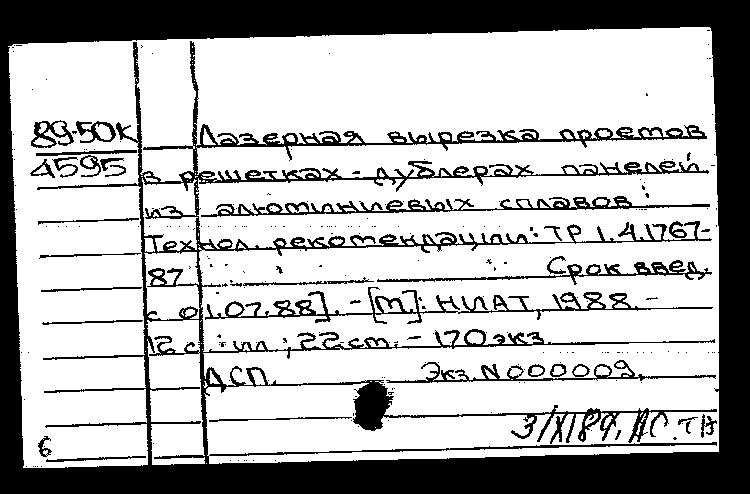 89-50К Лазерная вырезка проемов
4595 в решетках-дублерах панелей
из алюминиевых сплавов :
Технол. рекомендации: ТР 1.4.1767-
87 Срок введ.
с 01.07.88]. - [М.]: НИАТ, 1988. -
12 с. : ил ; 22 см. - 170 экз.
ДСП. Экз. N 000009.
3/XI89.
6